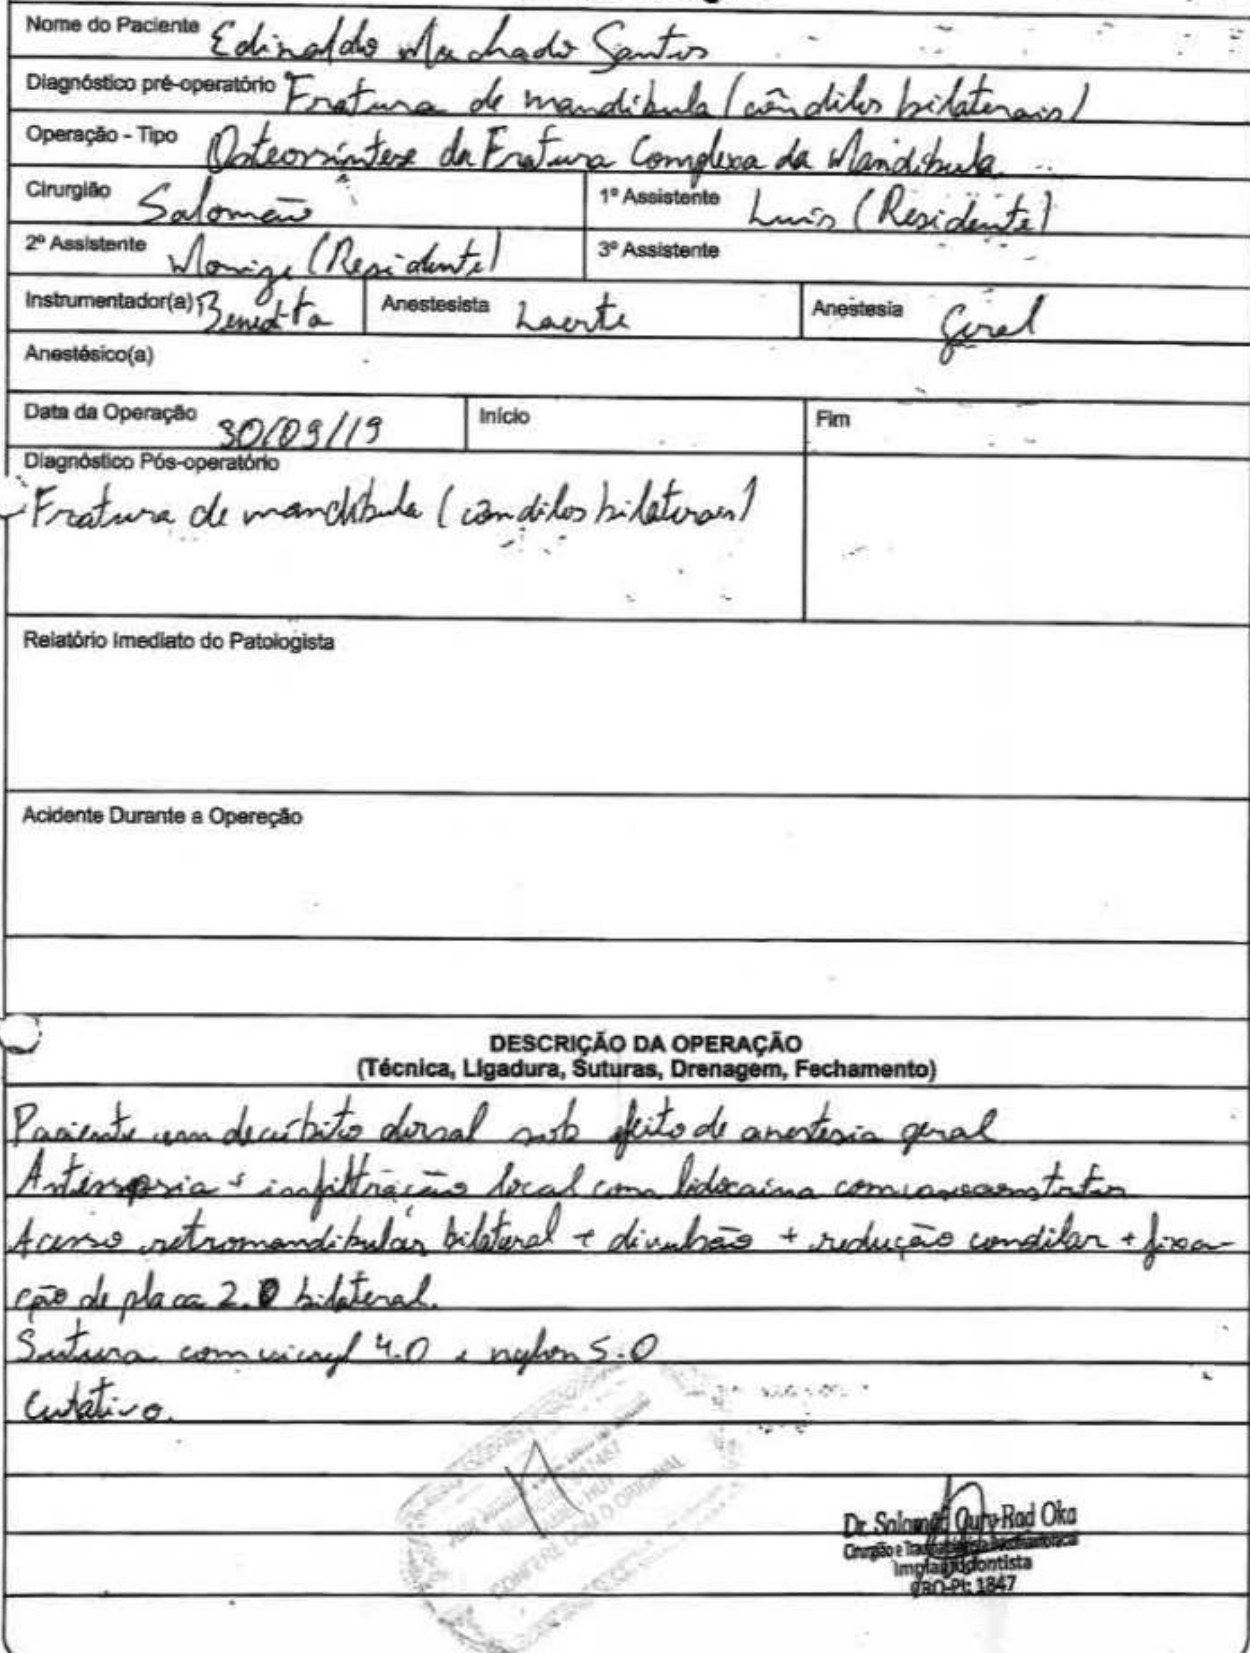 Nome do Paciente Edinaldo Machado Santos
Diagnóstico pré-operatório Fratura de mandíbula (côndilos bilaterais)
Operação - Tipo Osteossíntese da Fratura Complexa da Mandíbula
Cirurgião Salomão 1º Assistente Luís (Residente)
2º Assistente (Residente) 3º Assistente
Instrumentador(a) Benedita Anestesista Laerte Anestesia Geral
Anestésico(a)
Data da Operação 30/09/19 Início Fim
Diagnóstico Pós-operatório
Fratura de mandíbula (condilos bilaterais)
Relatório Imediato do Patologista
Acidente Durante a Opereção
DESCRIÇÃO DA OPERAÇÃO
(Técnica, Ligadura, Suturas, Drenagem, Fechamento)
Paciente em decúbito dorsal sob efeito de anestesia geral
Antissepsia + infiltração local com lidocaína com vasoconstritor
Acesso retromandibular bilateral + divulsão + redução condilar + fixa-
ção de placa 2.0 bilateral.
Sutura com vicryl 4.0 e nylon 5.0
Curativo.
CONFERE COM O ORIGINAL
Dr. Salomão Cury-Rad Oka
Cirurgião e
Implantodontista
CRO-PI: 1847